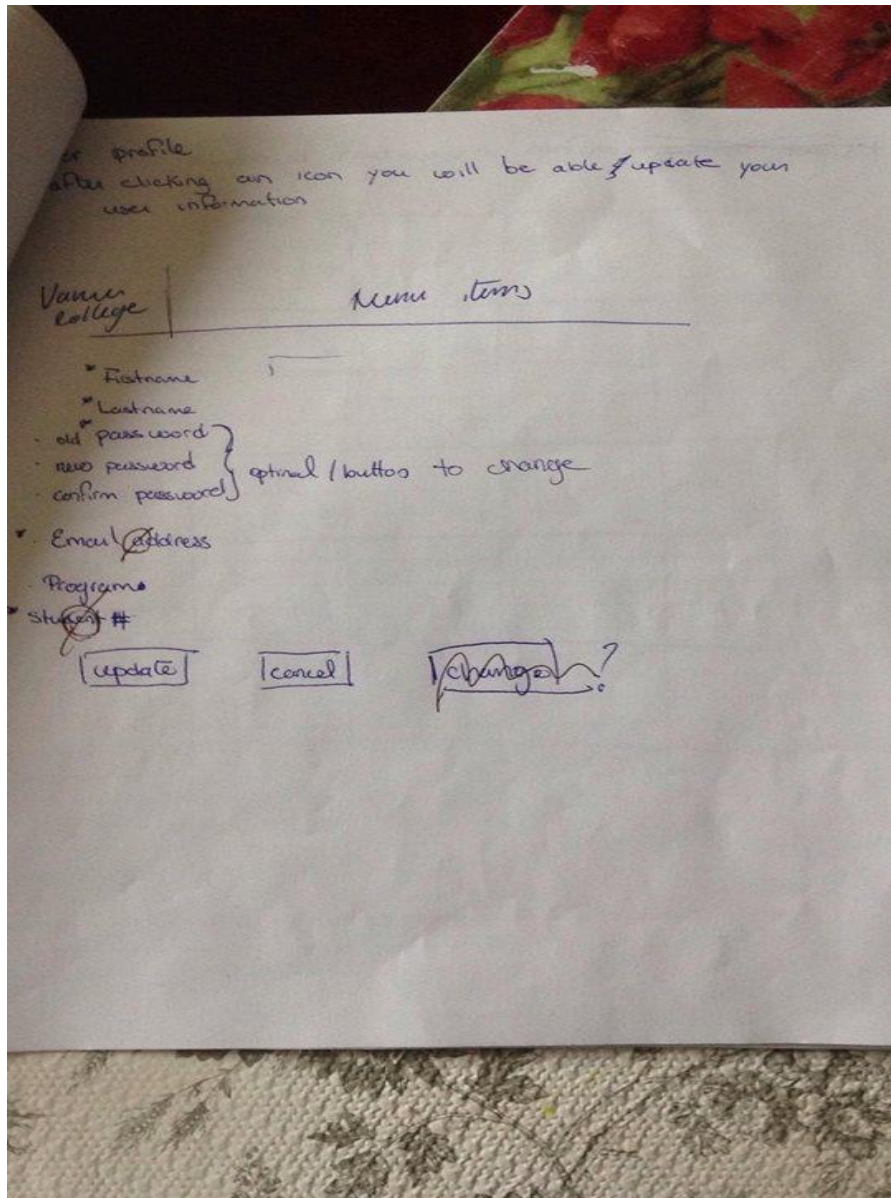 er profile
after clicking an icon you will be able & update your
user information
Vanier
College
Menu items
* Firstname
* Lastname
· old * password
· new password
· confirm password
optinal / button to change
* · Email address
· Program
* Student #
update
cancel
change ?